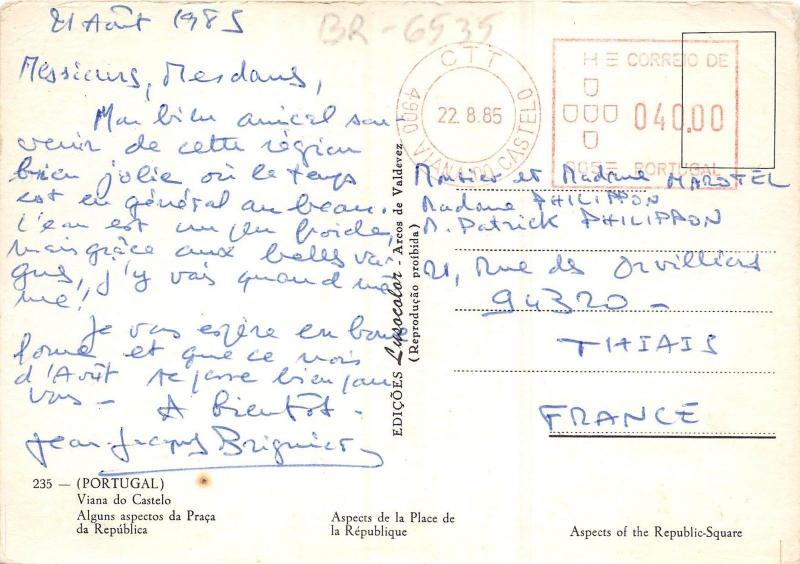 21 Août 1985
BR-6535
Messieurs, Mesdames,
Mon bien amical sou-
venir de cette région
bien jolie où le temps
est en général au beau.
L'eau est un peu froide,
mais grâce aux belles va-
gues, j'y vais quand mê-
me!
Je vous espère en bonne
forme et que ce mois
d'Août se passe bien pour
vous -
A bientôt -
Jean-Jacques Brignier
CTT
22.8.85
4900 VIANA DO CASTELO
CORREIO DE
040.00
PORTUGAL
Monsieur et Madame MAROTEL
Madame PHILIPPON
M. Patrick PHILIPPON
21, Rue des Orvilliers
94320 -
THIAIS
FRANCE
EDIÇÕES Lusocolor - Arcos de Valdevez
(Reprodução proibida)
235 — (PORTUGAL)
Viana do Castelo
Alguns aspectos da Praça
da República
Aspects de la Place de
la République
Aspects of the Republic-Square